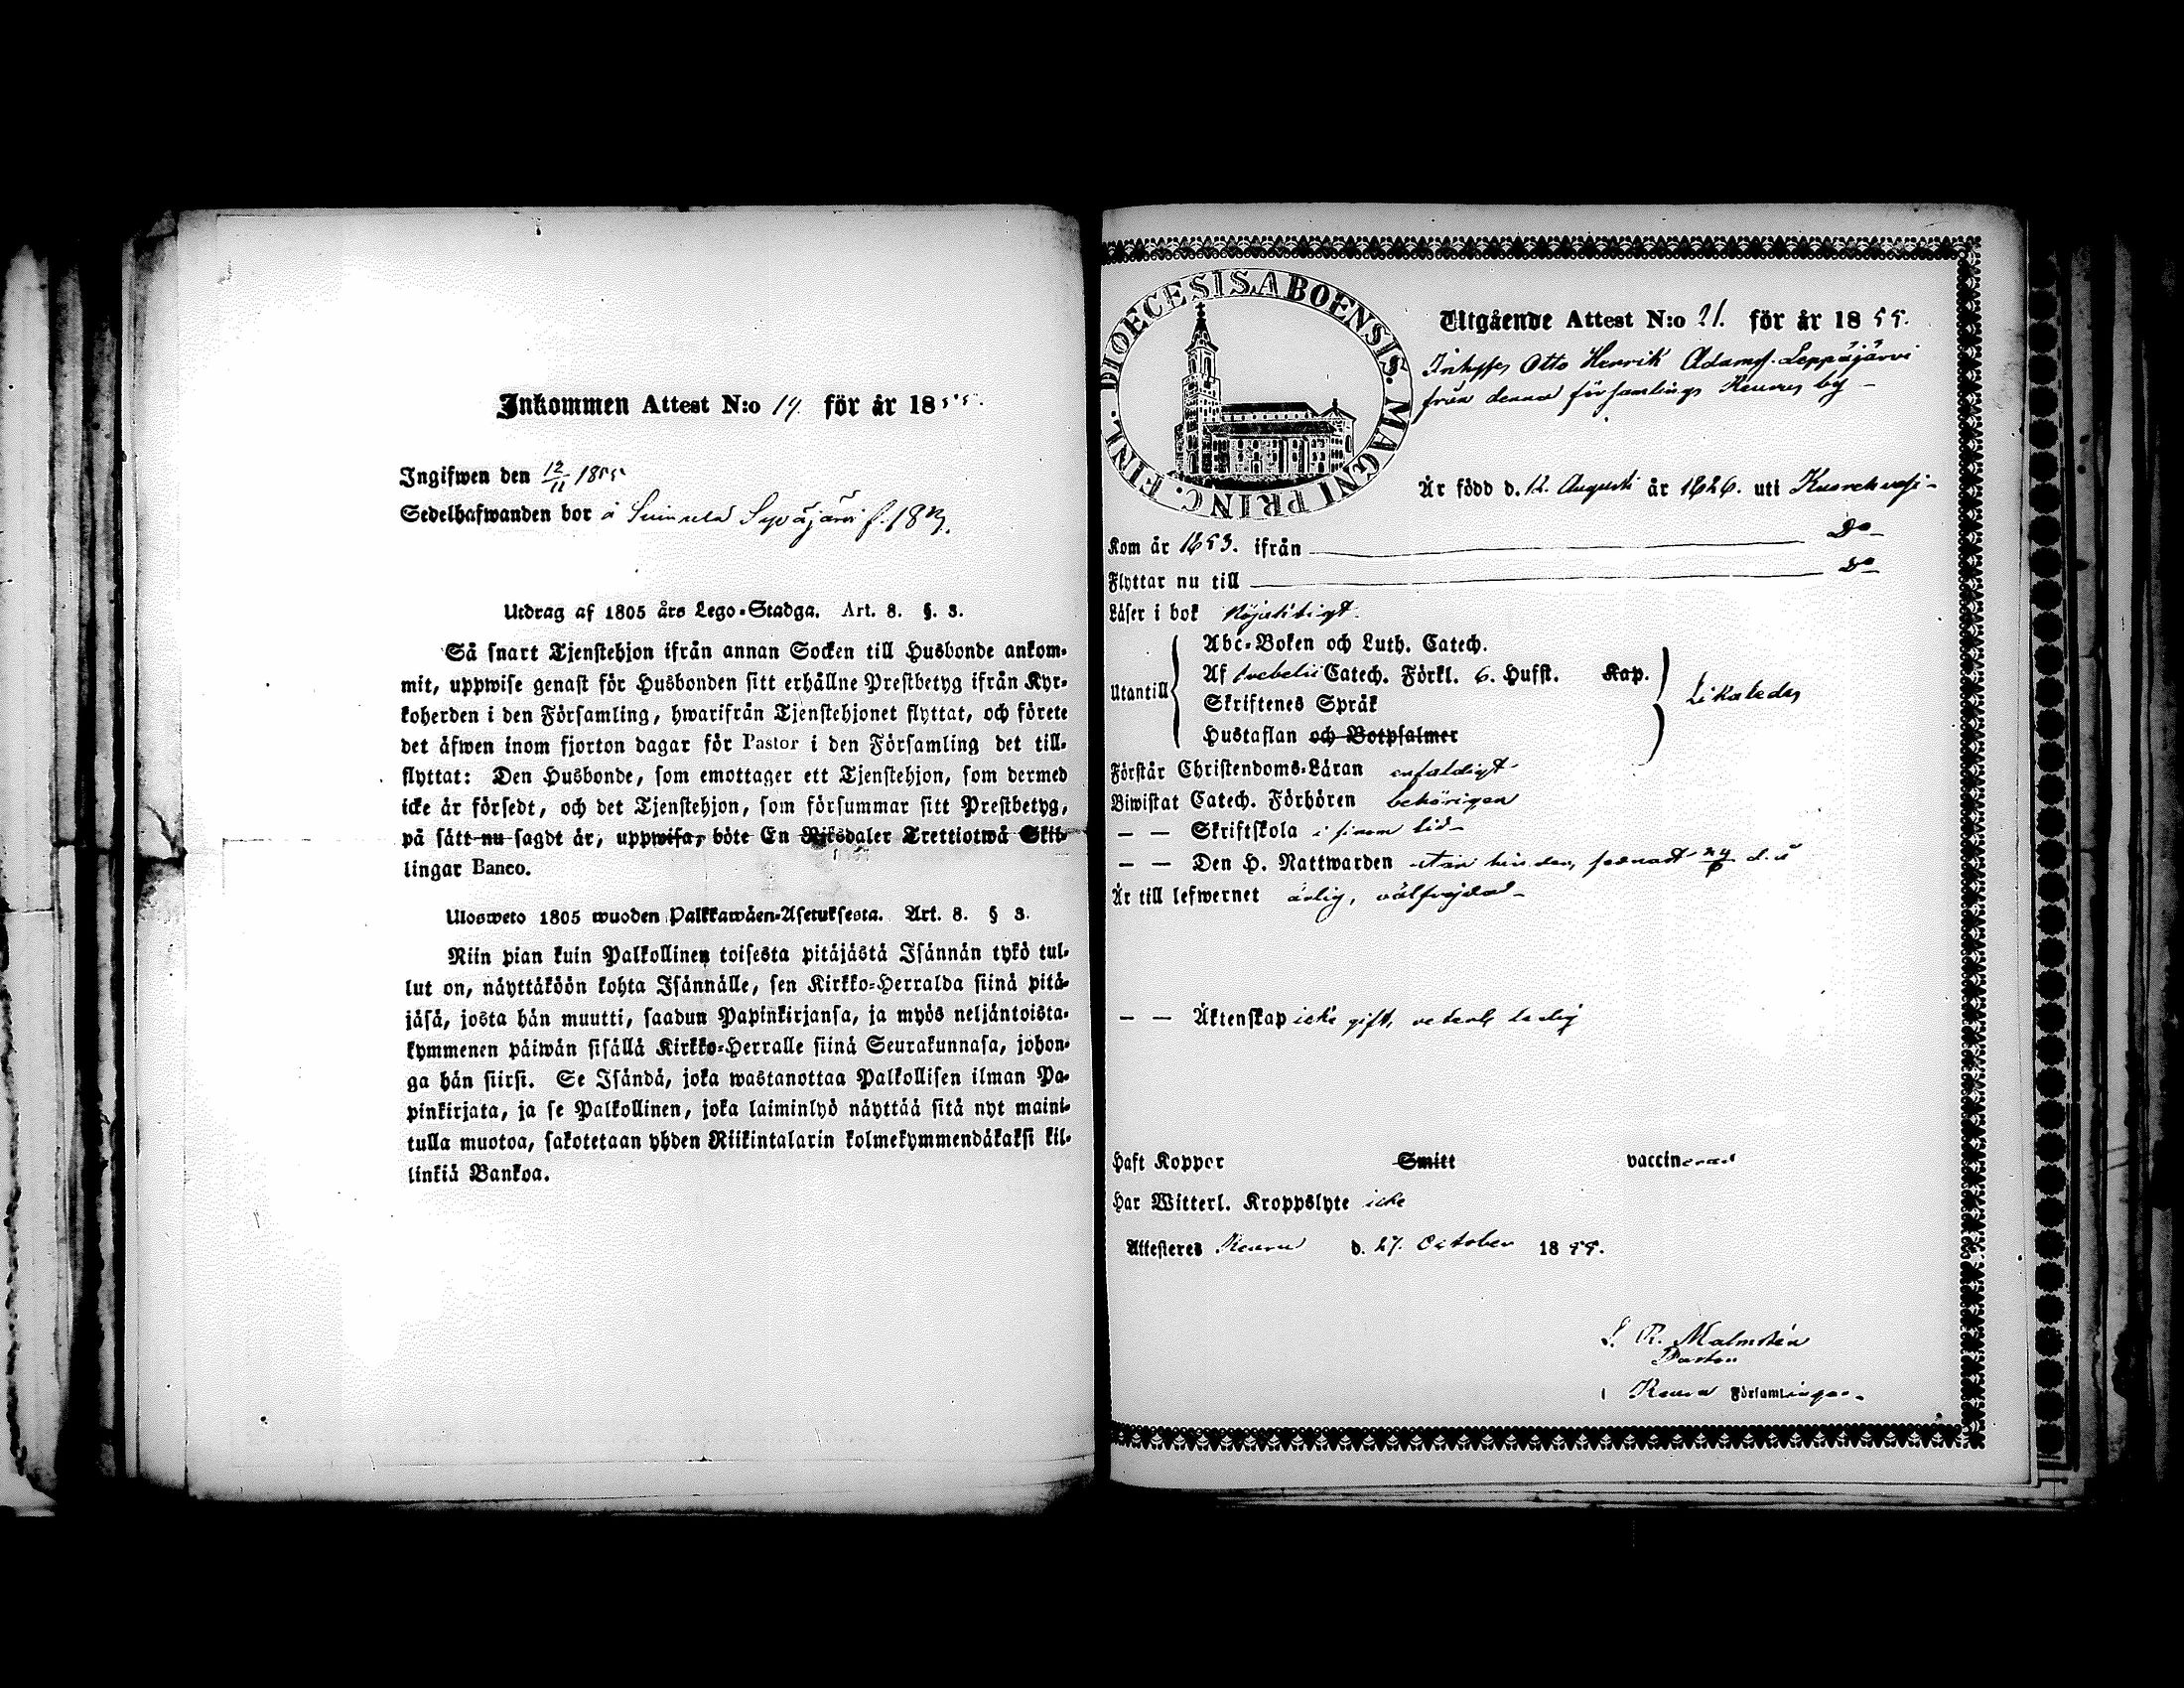 Inkommen Attest N:o 19. för år 1855.
Ingifwen den 12/11 1855
Sedelhafwanden bor å Syväjärvi
Utdrag af 1805 års Lego-Stadga. Art. 8. §. 3.
Så snart Tjenstehjon ifrån annan Socken till Husbonde ankom-
mit, uppwise genast för Husbonden sitt erhållne Prestbetyg ifrån Kyr-
koherden i den Församling, hwarifrån Tjenstehjonet flyttat, och förete
det äfwen inom fjorton dagar för Pastor i den Församling det till-
flyttat: Den Husbonde, som emottager ett Tjenstehjon, som dermed
icke är försedt, och det Tjenstehjon, som försummar sitt Prestbetyg,
på sätt nu sagdt är, uppwisa, böte En Riksdaler Trettiotwå Skil-
lingar Banco.
Ulosweto 1805 wuoden Palkkawäen-Asetuksesta. Art. 8. § 3.
Niin pian kuin Palkollinen toisesta pitäjästä Isännän tykö tul-
lut on, näyttäköön kohta Isännälle, sen Kirkko-Herralda siinä pitä-
jäsä, josta hän muutti, saadun Papinkirjansa, ja myös neljäntoista-
kymmenen päiwän sisällä Kirkko-Herralle siinä Seurakunnasa, johon-
ga hän siirsi. Se Isändä, joka wastanottaa Palkollisen ilman Pa-
pinkirjata, ja se Palkollinen, joka laiminlyö näyttää sitä nyt maini-
tulla muotoa, sakotetaan yhden Riikintalarin kolmekymmendäkaksi kil-
linkiä Bankoa.
DIOECESIS ABOENSIS. MAGNI PRINC. FINL.
Utgående Attest N:o 21. för år 1855.
Inhyses Otto Henrik Adamsf. Leppäjärvi
från denna församlings Keuru by
Är född d. 12. Augusti år 1826. uti
Kom år 1853. ifrån Do
Flyttar nu till Do
Läser i bok Nöjaktigt.
Utantill
Abc-Boken och Luth. Catech.
Af Svebelii Catech. Förkl. 6. Hufst. Kap.
Skriftenes Språk
Hustaflan och Botpsalmer
Likaledes
Förstår Christendoms-Läran enfaldigt
Biwistat Catech. Förhören behörigen
— — Skriftskola i sinom tid
— — Den H. Nattwarden utan hinder, senast 24/6 d. å
Är till lefwernet ärlig, välfrejdad
— — Äktenskap icke gift, ledig
Haft Koppor Smitt vaccinerad
Har Witterl. Kroppslyte icke
Attesteres Keuru d. 27. October 1855.
Malmstén
Pastor
i Keuru Församlingar.